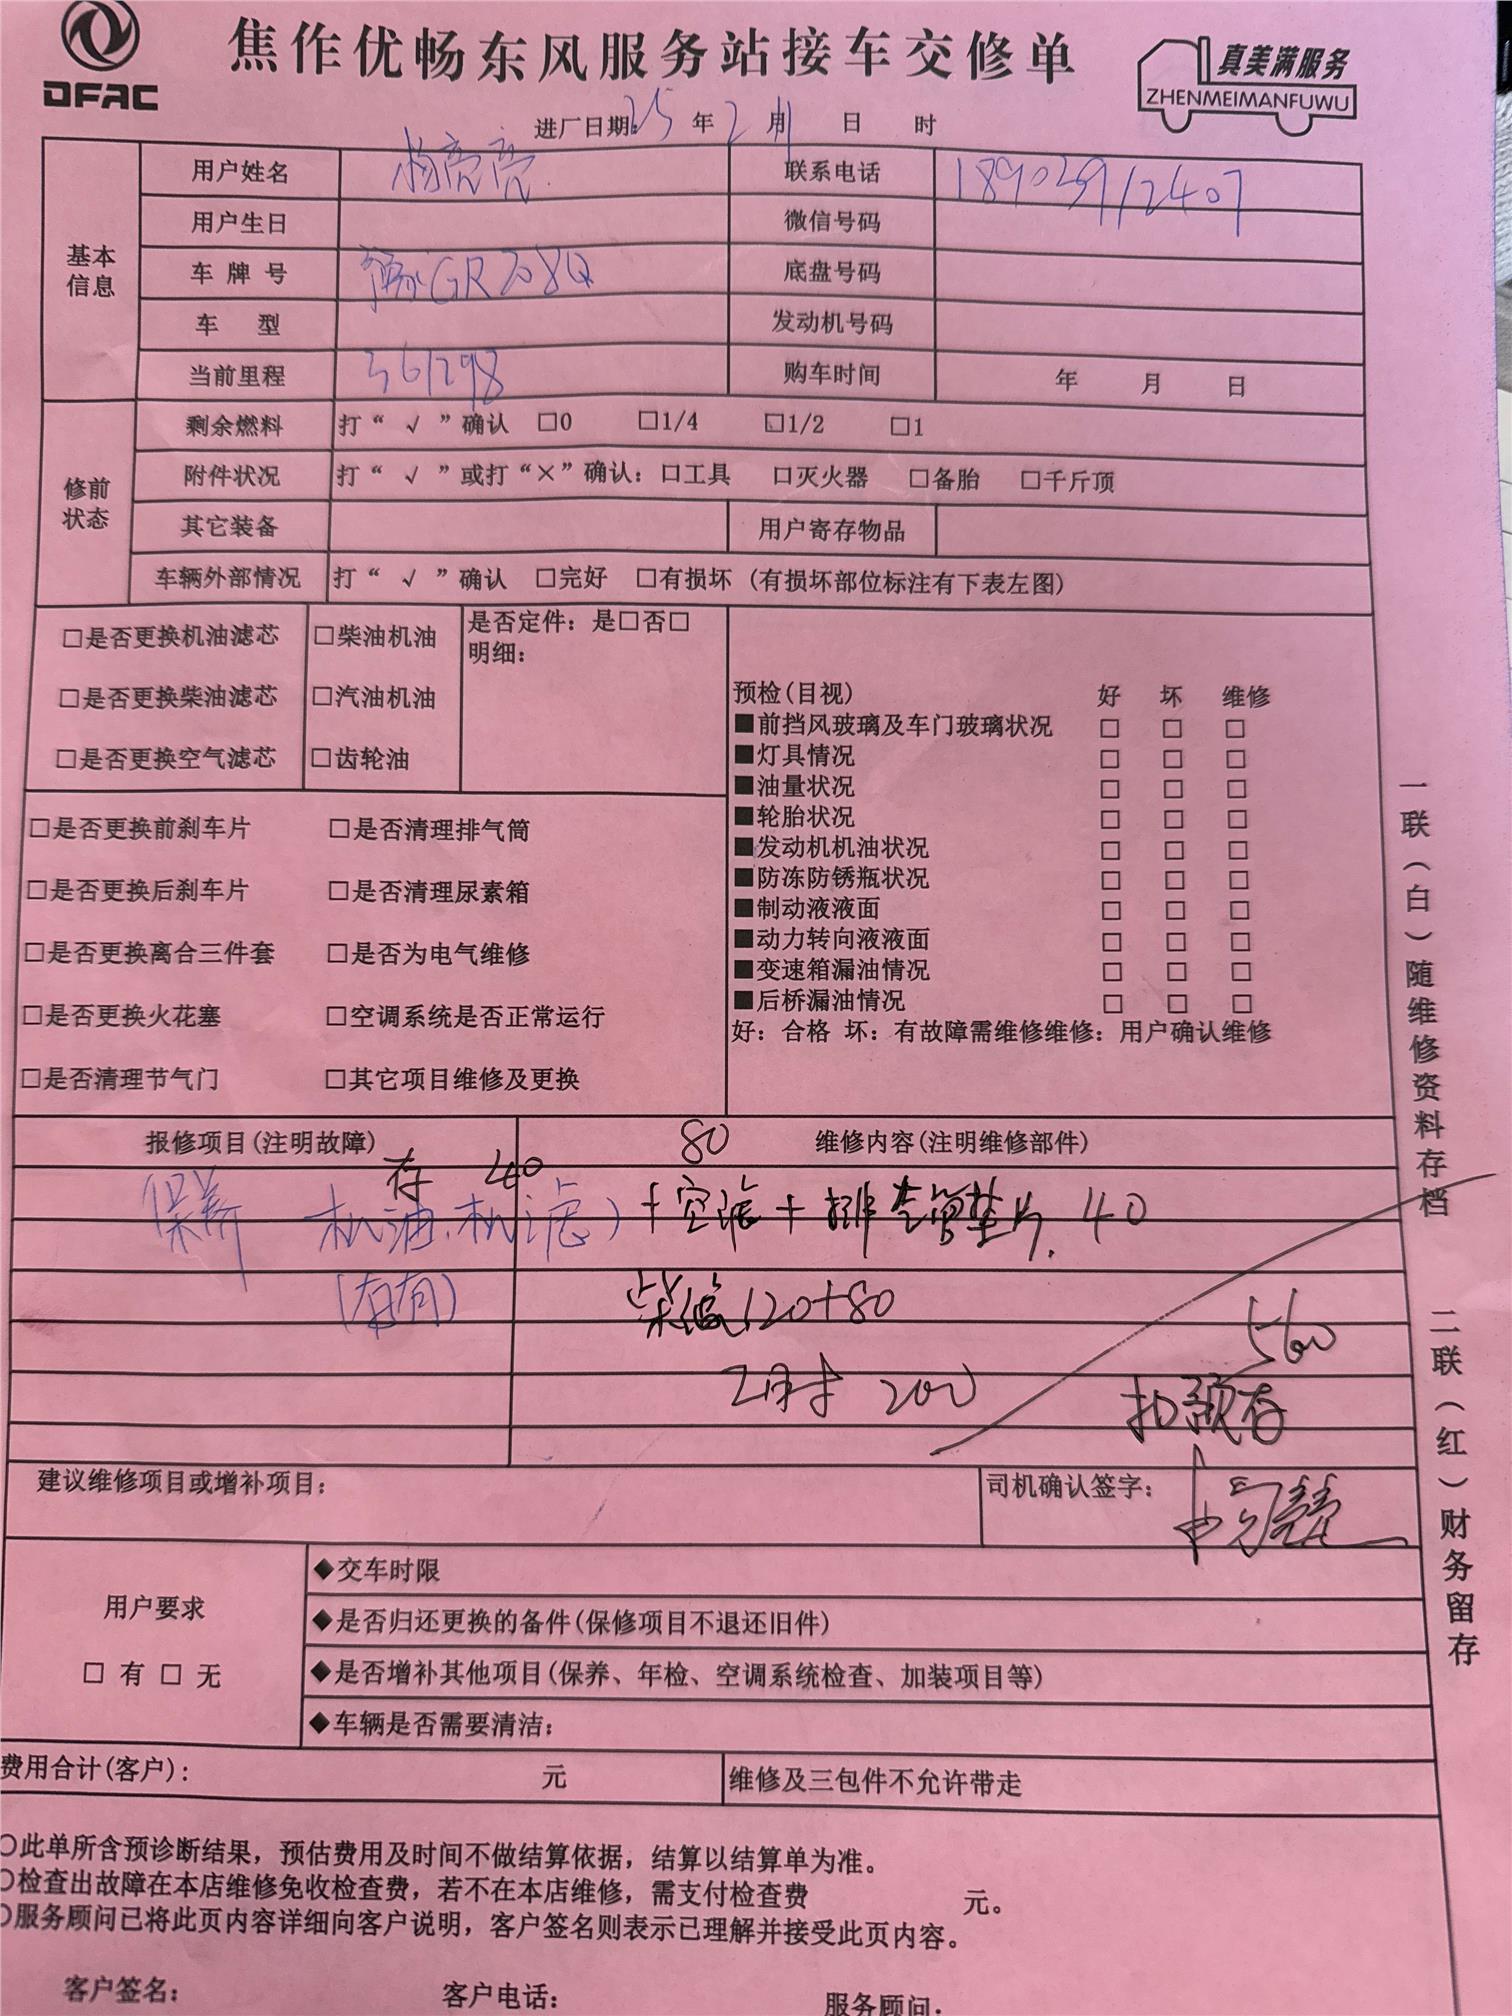 DFAC
焦作优畅东风服务站接车交修单
真美满服务
ZHENMEIMANFUWU
进厂日期: 25 年 2 月 日 时
基本信息
用户姓名 杨亮亮 联系电话 18903912407
用户生日 微信号码
车牌号 豫GR708Q 底盘号码
车 型 发动机号码
当前里程 361298 购车时间 年 月 日
修前状态
剩余燃料 打“ √ ”确认 □0 □1/4 □1/2 □1
附件状况 打“ √ ”或打“×”确认: □工具 □灭火器 □备胎 □千斤顶
其它装备 用户寄存物品
车辆外部情况 打“ √ ”确认 □完好 □有损坏 (有损坏部位标注有下表左图)
□是否更换机油滤芯 □柴油机油 是否定件: 是□否□
明细:
□是否更换柴油滤芯 □汽油机油
□是否更换空气滤芯 □齿轮油
□是否更换前刹车片 □是否清理排气筒
□是否更换后刹车片 □是否清理尿素箱
□是否更换离合三件套 □是否为电气维修
□是否更换火花塞 □空调系统是否正常运行
□是否清理节气门 □其它项目维修及更换
预检(目视) 好 坏 维修
■前挡风玻璃及车门玻璃状况 □ □ □
■灯具情况 □ □ □
■油量状况 □ □ □
■轮胎状况 □ □ □
■发动机机油状况 □ □ □
■防冻防锈瓶状况 □ □ □
■制动液液面 □ □ □
■动力转向液液面 □ □ □
■变速箱漏油情况 □ □ □
■后桥漏油情况 □ □ □
好: 合格 坏: 有故障需维修维修: 用户确认维修
报修项目(注明故障) 维修内容(注明维修部件)
存 40 80
保养 机油.机滤) +空滤+排气管垫片. 40
柴滤120+80
工时 200
560
扣预存
建议维修项目或增补项目: 司机确认签字:
用户要求
□ 有 □ 无
◆交车时限
◆是否归还更换的备件(保修项目不退还旧件)
◆是否增补其他项目(保养、年检、空调系统检查、加装项目等)
◆车辆是否需要清洁:
费用合计(客户): 元 维修及三包件不允许带走
○此单所含预诊断结果，预估费用及时间不做结算依据，结算以结算单为准。
○检查出故障在本店维修免收检查费，若不在本店维修，需支付检查费 元。
○服务顾问已将此页内容详细向客户说明，客户签名则表示已理解并接受此页内容。
客户签名: 客户电话: 服务顾问:
一联（白）随维修资料存档
二联（红）财务留存